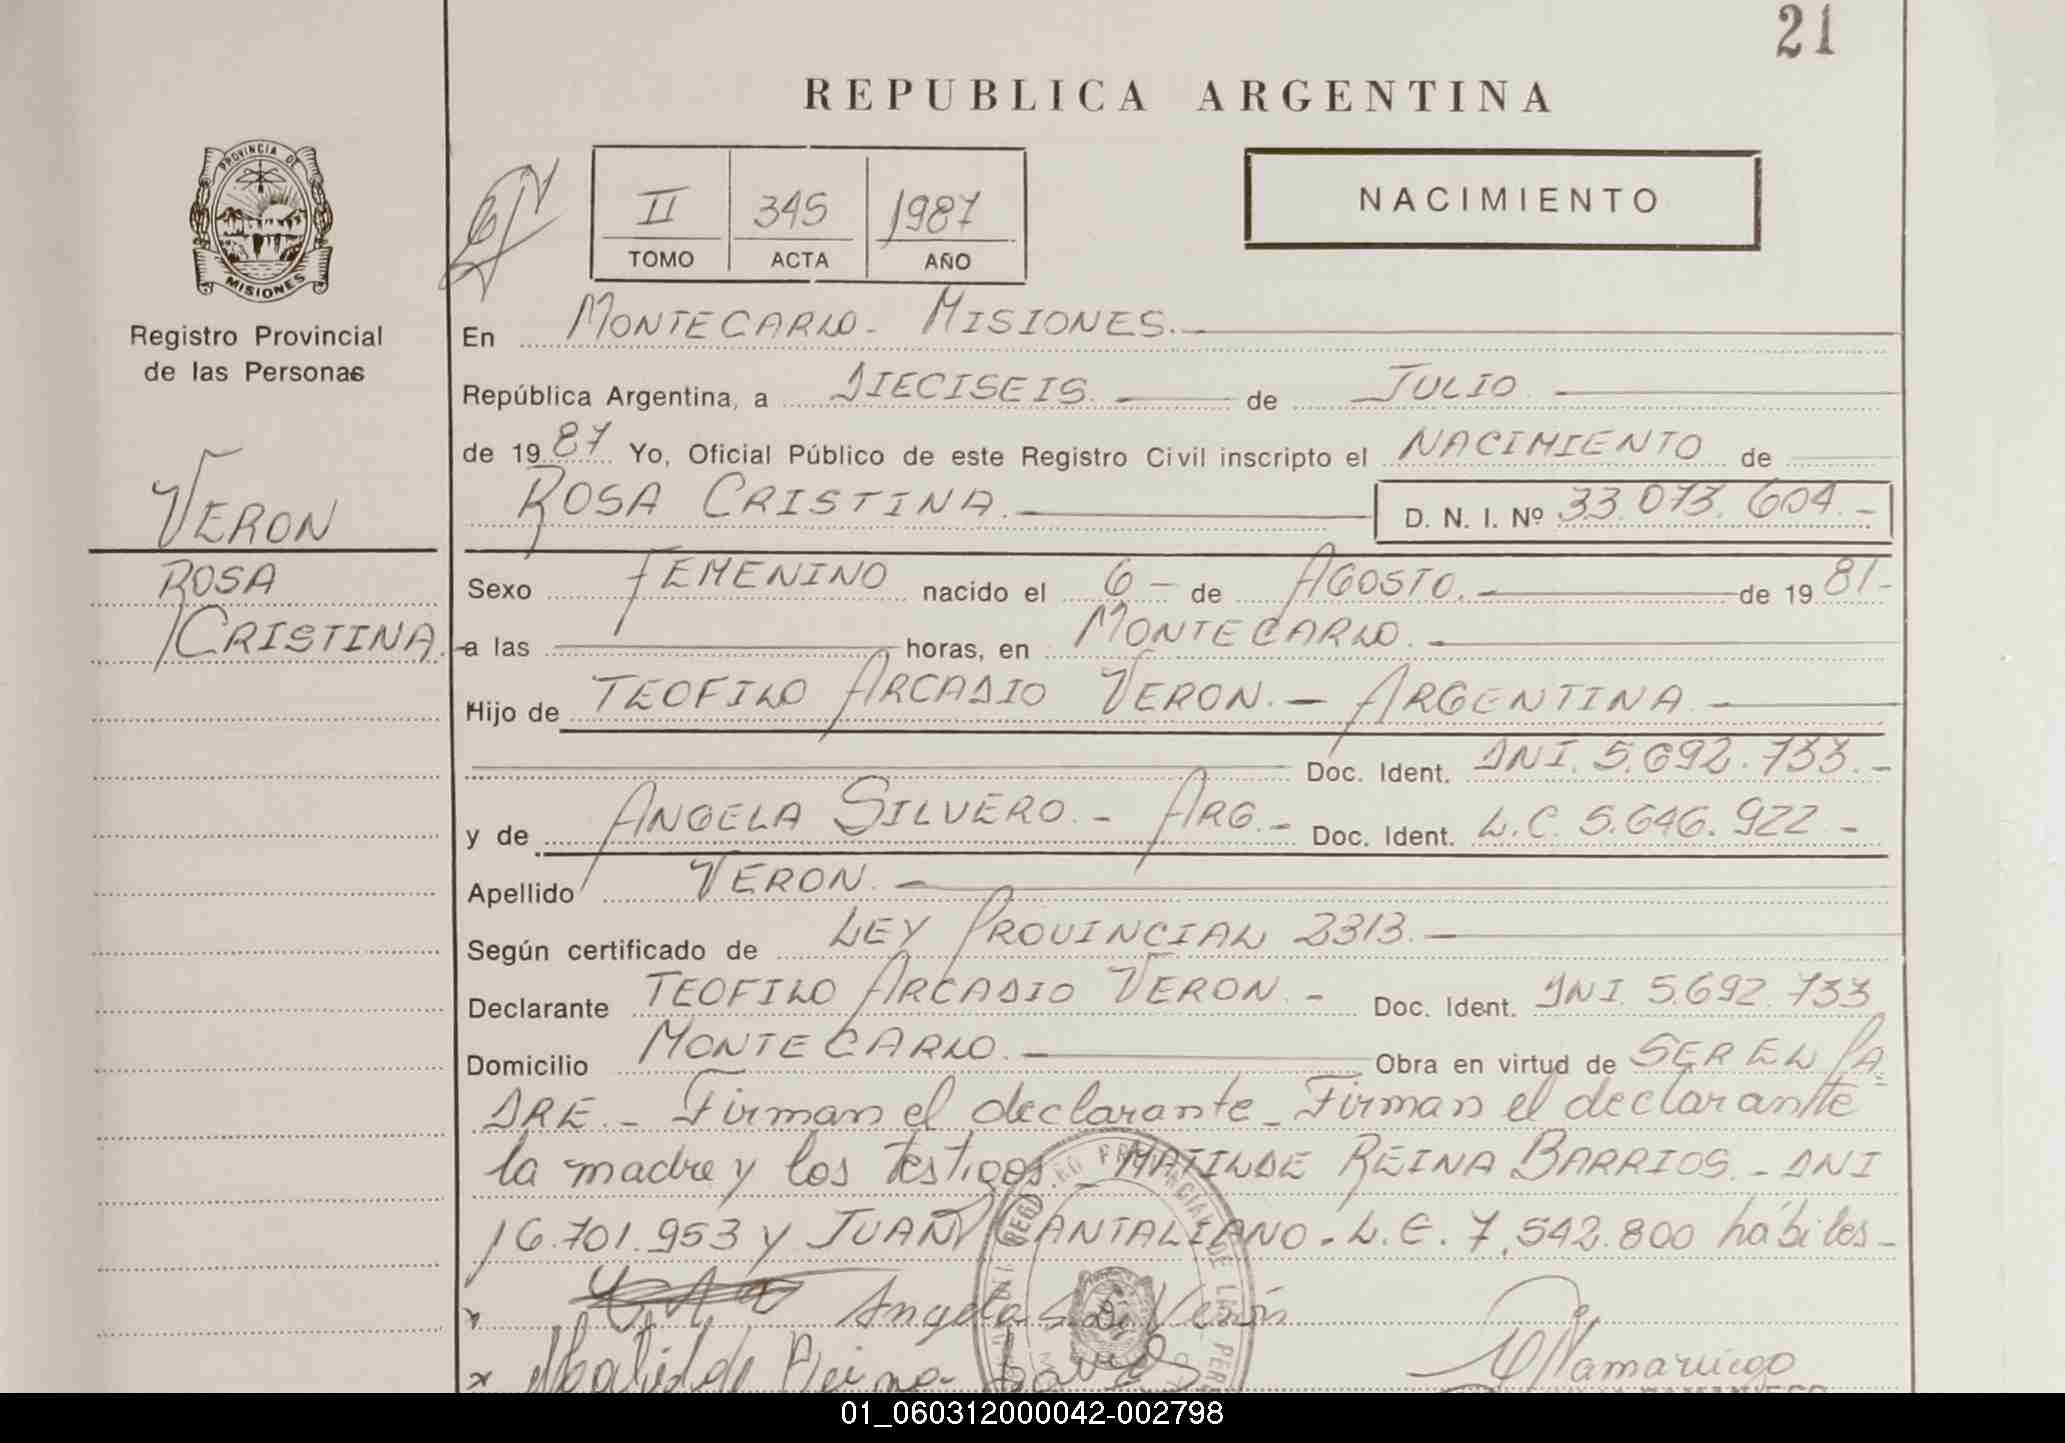 21
REPUBLICA ARGENTINA
PROVINCIA DE
MISIONES
Registro Provincial
de las Personas
II 345 1987
TOMO ACTA AÑO
NACIMIENTO
En MONTECARLO - MISIONES.
República Argentina, a DIECISEIS. de JULIO.
de 1987 Yo, Oficial Público de este Registro Civil inscripto el NACIMIENTO de
ROSA CRISTINA. D. N. I. Nº 33.073.604.-
VERON
ROSA
CRISTINA.
Sexo FEMENINO nacido el 6 - de AGOSTO. de 1981-
a las horas, en MONTECARLO.
Hijo de TEOFILO ARCADIO VERON. - ARGENTINA
Doc. Ident. DNI. 5.692.733.-
y de ANGELA SILVERO. - ARG.- Doc. Ident. L.C. 5.646.922 -
Apellido VERON. -
Según certificado de LEY PROVINCIAL 2313.
Declarante TEOFILO ARCADIO VERON. - Doc. Ident. DNI 5.692.733
Domicilio MONTECARLO. Obra en virtud de SER EL PA
DRE. - Firman el declarante - Firman el declarante
la madre y los testigos. MATILDE REINA BARRIOS. - DNI
16.701.953 y JUAN CANTALIANO - L.E. 7.542.800 hábiles -
x Angela S. de Verón
x Matilde Reina
01_060312000042-002798